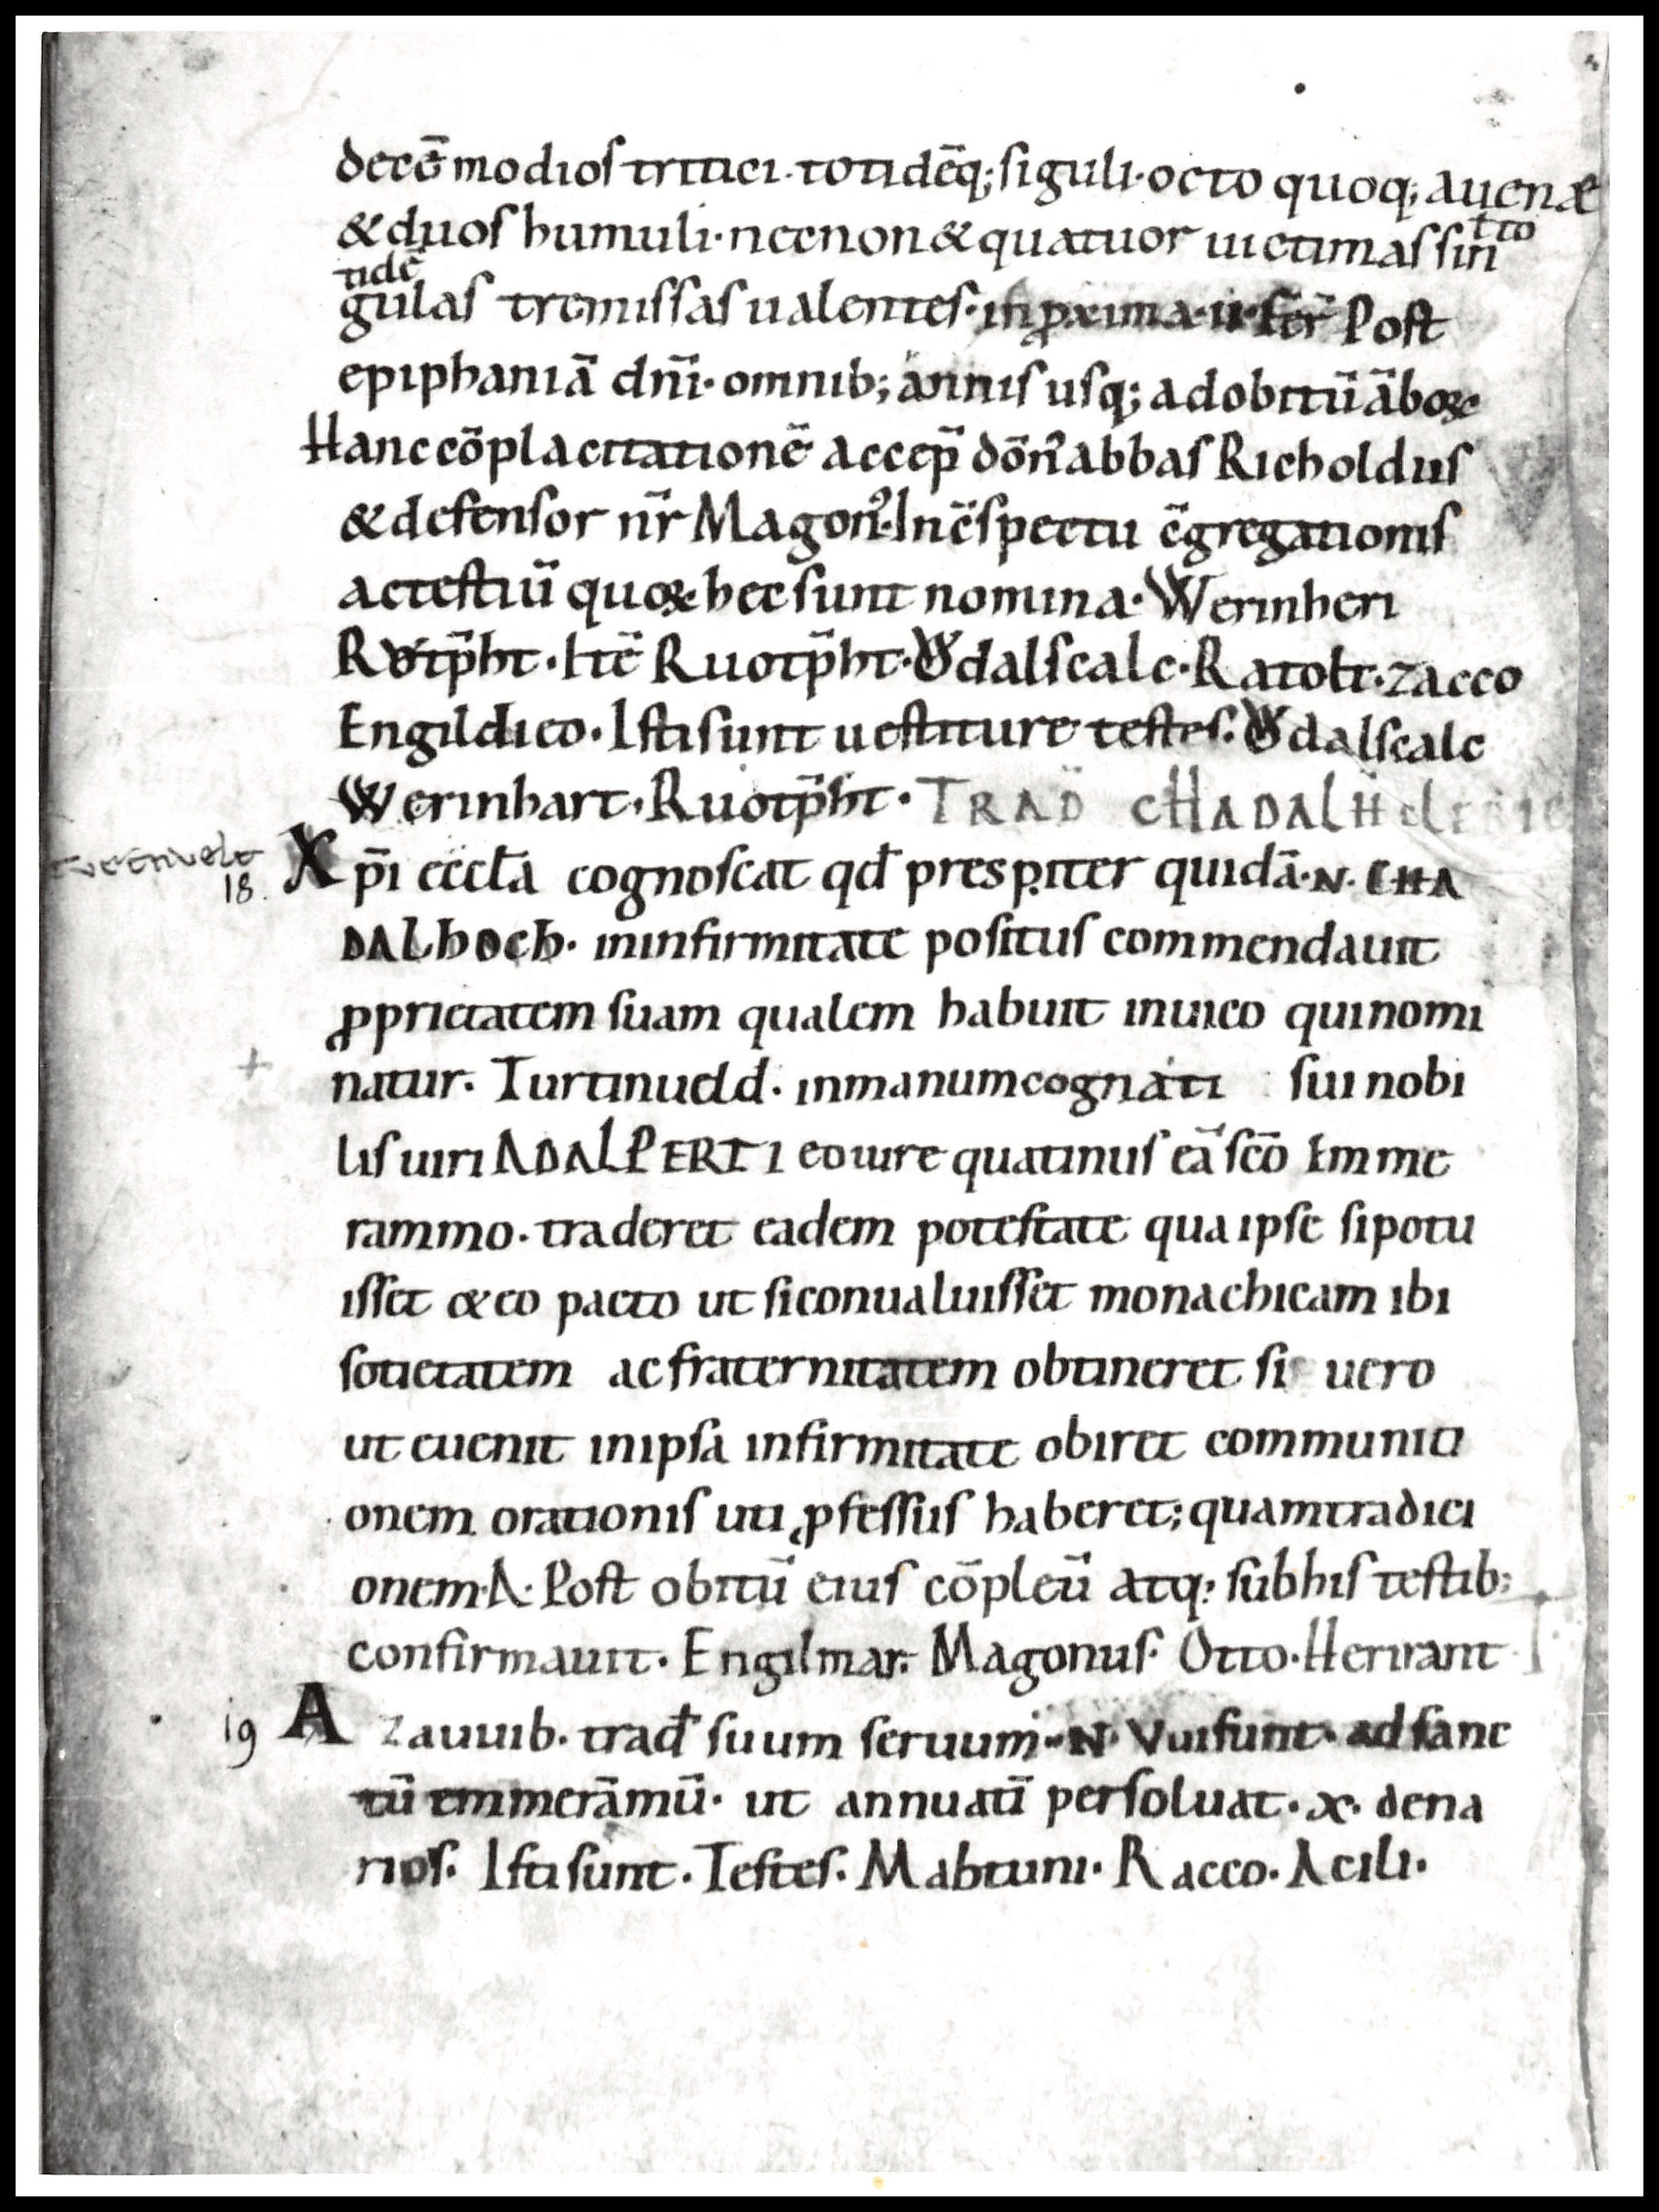 decē modios tritici. totidēq; siguli. octo quoq; auenę
& duos humuli. necnon & quatuor uictimas sin
ł to
tidē
gulas tremissas ualentes. in ꝓxima .ii. fer̄ Post
epiphaniā dn̄i. omnib; annis usq; ad obitū āboꝝ
Hanc cōplacitationē accep̄ dōn̄ abbas Richoldus
& defensor nr̄ Magon᾿. In c̄spectu c̄gregationis
ac testiū quoꝝ hec sunt nomina. Werinheri
Rŏtp̄ht. Itē Ruotp̄ht. Ŏdalscalc. Ratolt. Zacco
Engildico. Isti sunt uestiture testes. Ŏdalscalc
Werinhart. Ruotp̄ht. TRAD̄ CHADALH
18. Xp̄i eccl̄a cognoscat qd̄ prespiter quidā .N. CHA
DALhOch. in infirmitate positus commendauit
ꝓprietatem suam qualem habuit in uico qui nomi
natur. Turtinueld. in manum cognati sui nobi
lis uiri ADALPERTI eo iure quatinus eā sc̄o Emme
rammo. traderet eadem potestate qua ipse si potu
isset & eo pacto ut si conualuisset monachicam ibi
sotietatem ac fraternitatem obtineret si uero
ut euenit in ipsa infirmitate obiret communiti
onem orationis uti ꝓfessus haberet; quam tradici
onem .A. Post obitū eius cōpleuı̄ atq; sub his testib;
confirmauit. Engilmar. Magonus. Otto. Herirant
19 Azauuib. trad̄ suum seruum .N. Vuifunt. ad sanc
tū emmerāmū. ut annuatī persoluat .x. dena
rios. Isti sunt. Testes. Mabtuni. Racco. Acili.